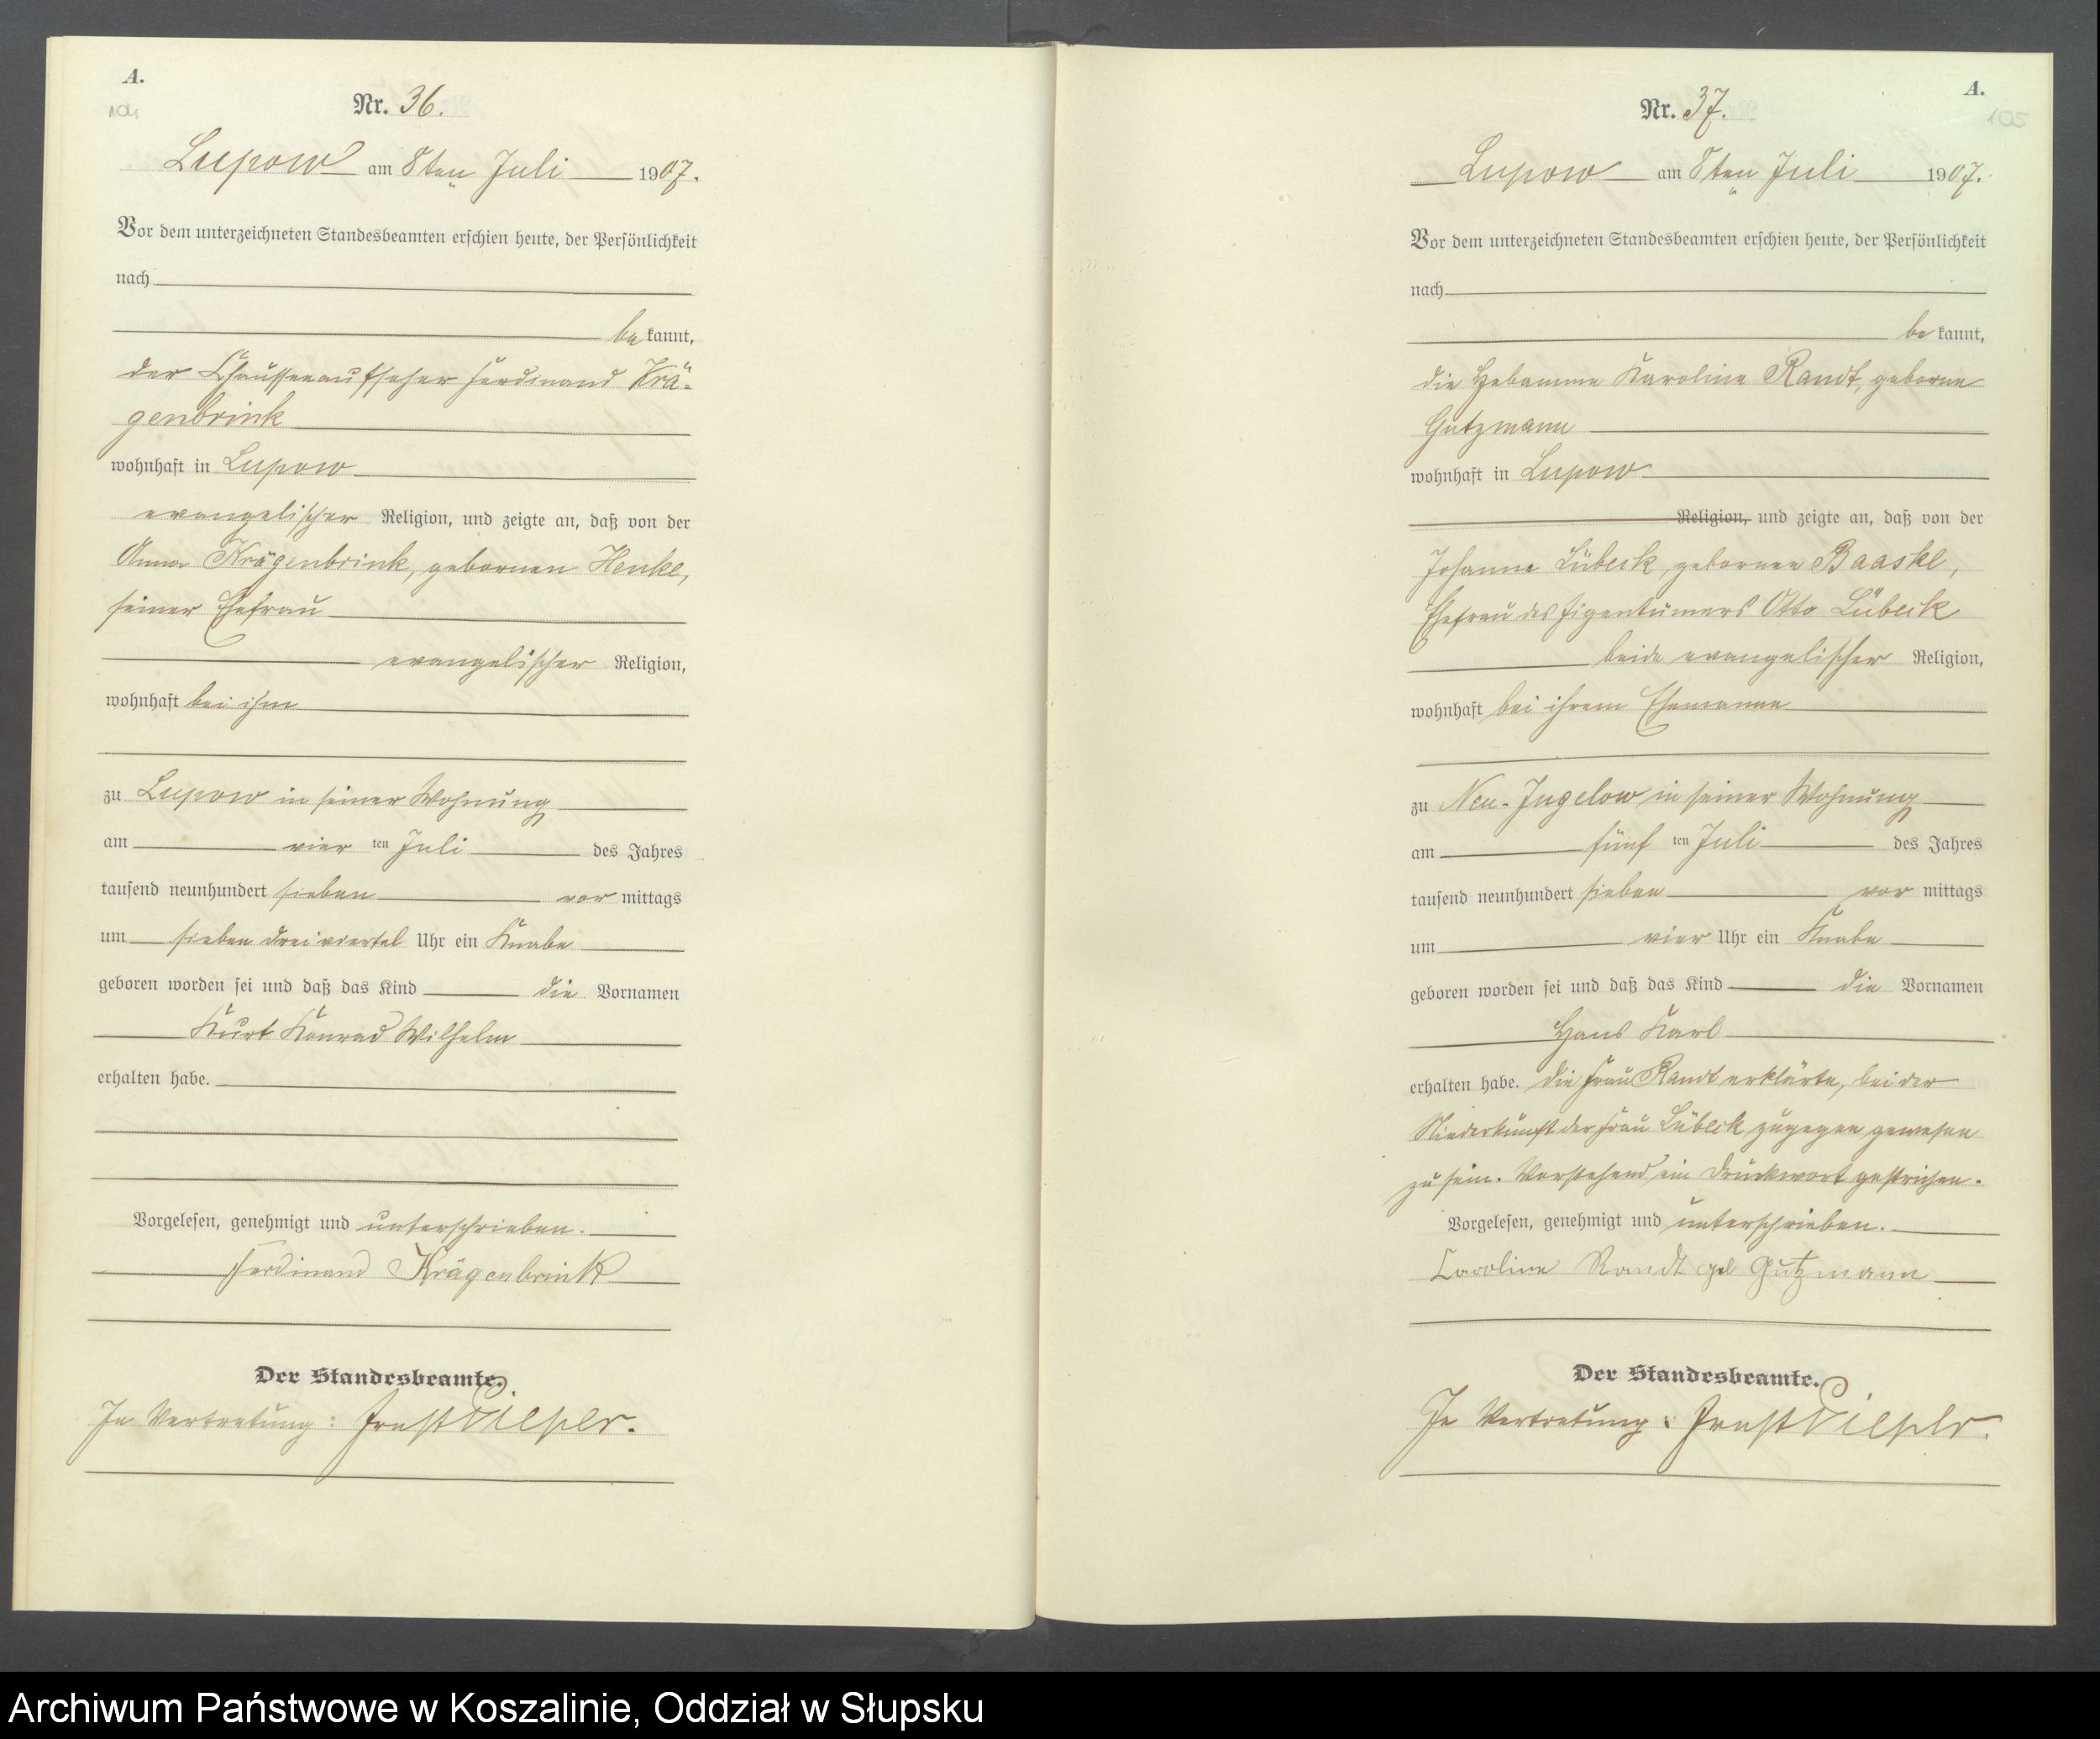 A.
104
Nr. 36.
Lupow am 8ten Juli 1907.
Vor dem unterzeichneten Standesbeamten erschien heute, der Persönlichkeit
nach
be kannt,
der Chausseeaufseher Ferdinand Krä-
genbrink
wohnhaft in Lupow
evangelischer Religion, und zeigte an, daß von der
Anna Krägenbrink, gebornen Henke,
seiner Ehefrau
evangelischer Religion,
wohnhaft bei ihm
zu Lupow in seiner Wohnung
am vier ten Juli des Jahres
tausend neunhundert sieben vor mittags
um sieben dreiviertel Uhr ein Knabe
geboren worden sei und daß das Kind die Vornamen
Kurt Konrad Wilhelm
erhalten habe.
Vorgelesen, genehmigt und unterschrieben.
Ferdinand Krägenbrink
Der Standesbeamte.
In Vertretung: Ernst Pieper.
A.
105
Nr. 37.
Lupow am 8ten Juli 1907.
Vor dem unterzeichneten Standesbeamten erschien heute, der Persönlichkeit
nach
be kannt,
die Hebamme Karoline Randt, geborne
Gutzmann
wohnhaft in Lupow
Religion, und zeigte an, daß von der
Johanne Lübeck, gebornen Baaske,
Ehefrau des Eigentümers Otto Lübeck
beide evangelischer Religion,
wohnhaft bei ihrem Ehemanne
zu Neu-Jugelow in seiner Wohnung
am fünf ten Juli des Jahres
tausend neunhundert sieben vor mittags
um vier Uhr ein Knabe
geboren worden sei und daß das Kind die Vornamen
Hans Karl
erhalten habe. Die Frau Randt erklärte, bei der
Niederkunft der Frau Lübeck zugegen gewesen
zu sein. Vorstehend ein Druckwort gestrichen.
Vorgelesen, genehmigt und unterschrieben.
Caroline Randt geb Gutzmann
Der Standesbeamte.
In Vertretung: Ernst Pieper.
Archiwum Państwowe w Koszalinie, Oddział w Słupsku